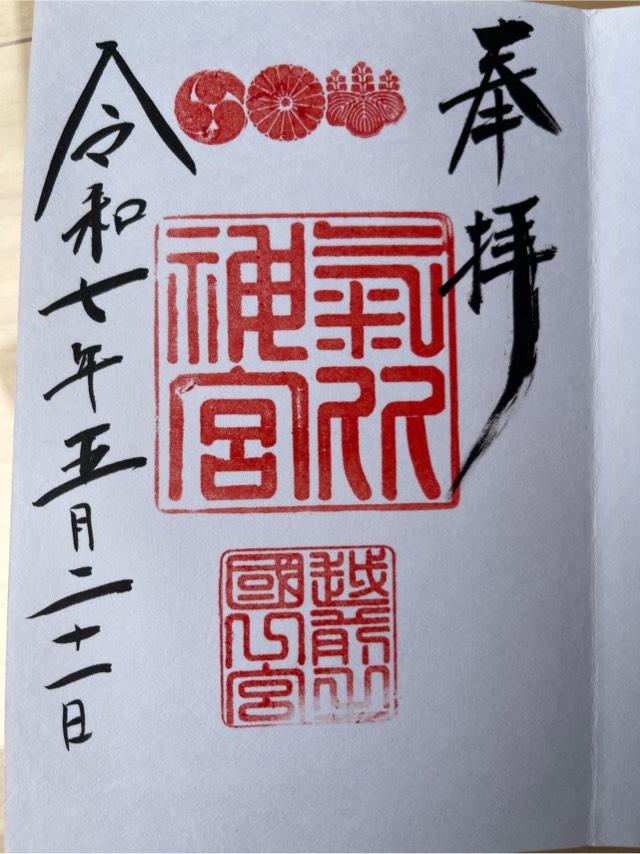 奉拝
氣比
神宮
越前之
國一宮
令和七年五月二十一日